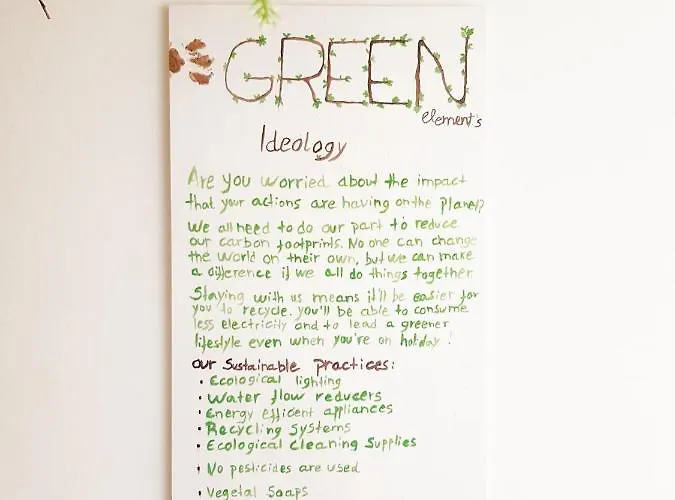 GREEN
element's
Ideology
Are you worried about the impact
that your actions are having on the planet?
We all need to do our part to reduce
our carbon footprints. No one can change
the world on their own, but we can make
a difference if we all do things together
Staying with us means it'll be easier for
you to recycle. you'll be able to consume
less electricity and to lead a greener
lifestyle even when you're on holiday !
our Sustainable practices:
• Ecological lighting
• Water flow reducers
• Energy efficent appliances
• Recycling Systems
• Ecological Cleaning Supplies
• No pesticides are used
• Vegetal Soaps